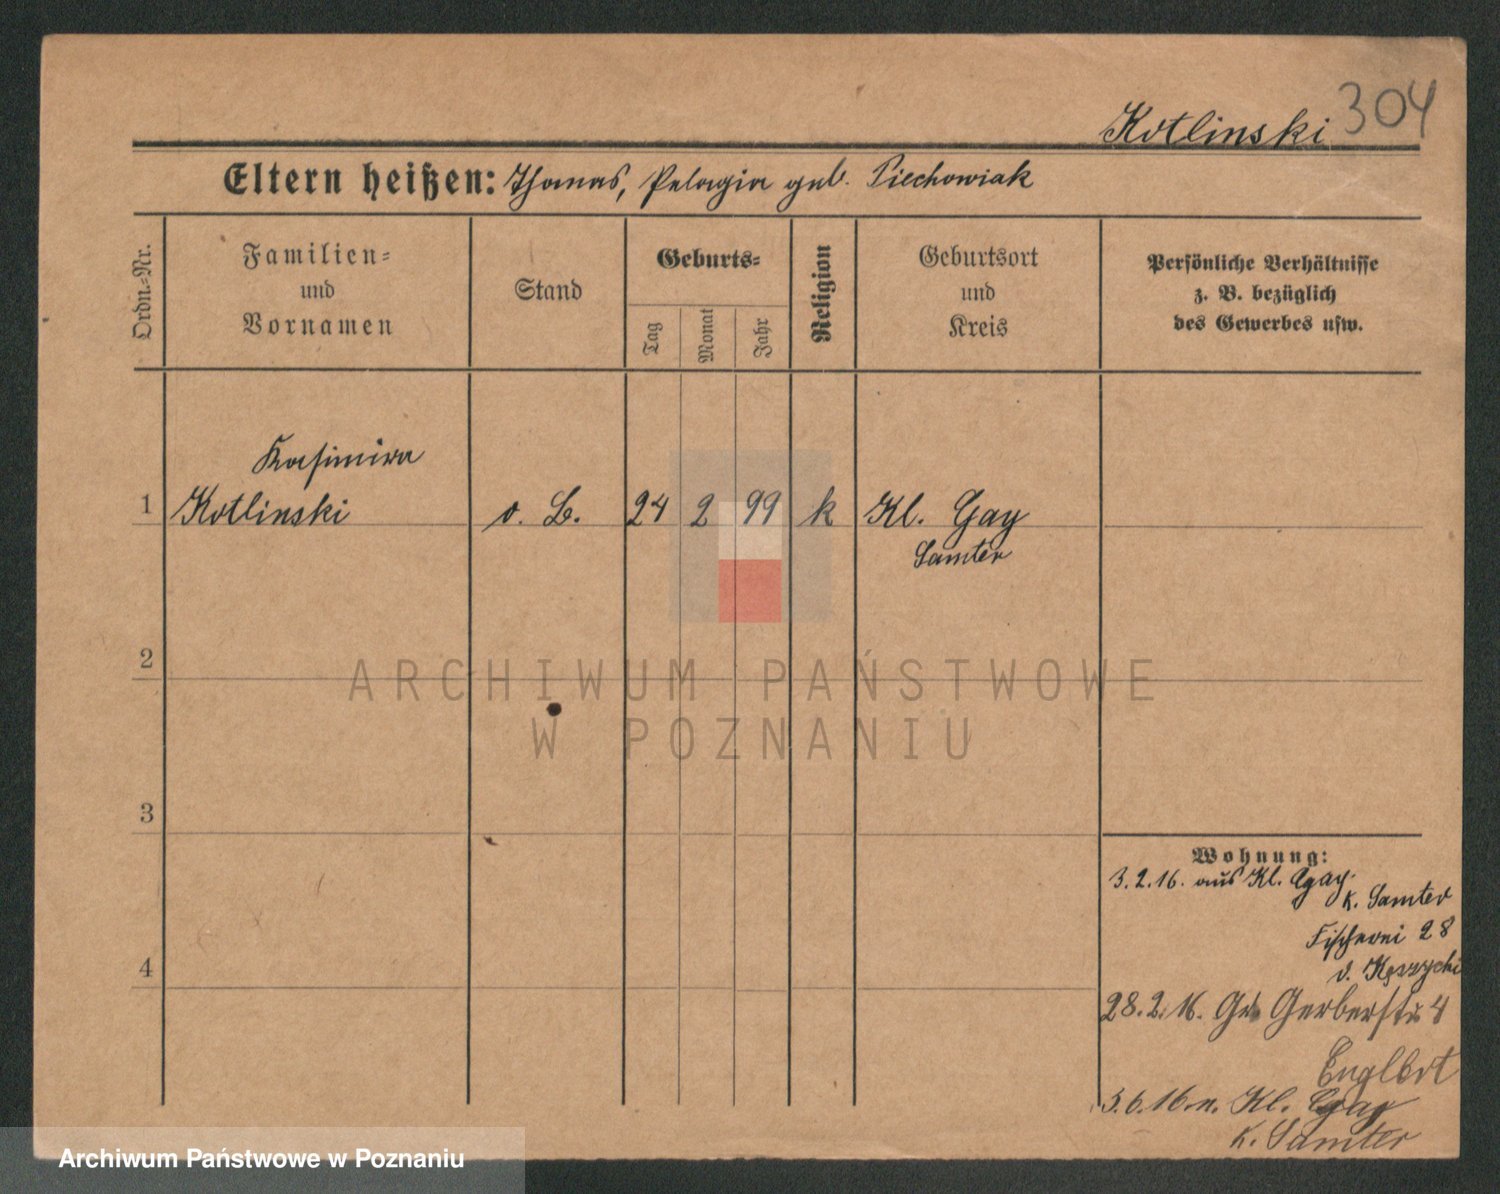 Kotlinski 304
Eltern heißen: Thomas, Pelagia geb. Piechowiak
Ordn.-Nr.
Familien-
und
Vornamen
Stand
Geburts-
Tag
Monat
Jahr
Religion
Geburtsort
und
Kreis
Persönliche Verhältnisse
z. B. bezüglich
des Gewerbes usw.
Kasimira
1 Kotlinski o. B. 24 2 99 k Kl. Gay
Samter
2
ARCHIWUM PAŃSTWOWE
W POZNANIU
3
4
Wohnung:
3.2.16. aus Kl. Gay.
K. Samter
Fischerei 28
v. Kęszycki
28.2.16. Gr. Gerberstr. 4
3.6.16. n. Kl. Gay
K. Samter
Archiwum Państwowe w Poznaniu